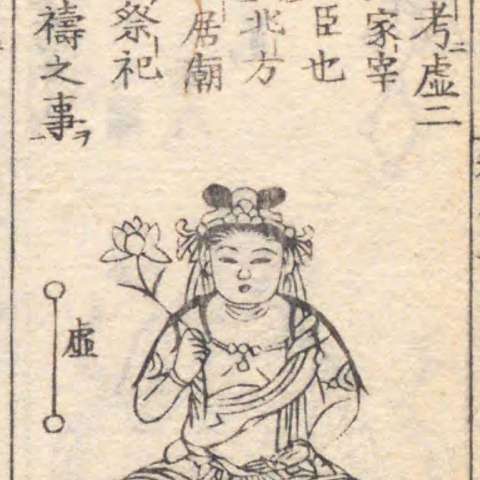 考虚二
家宰
臣也
北方
居廟
祭祀
禱之事
虚